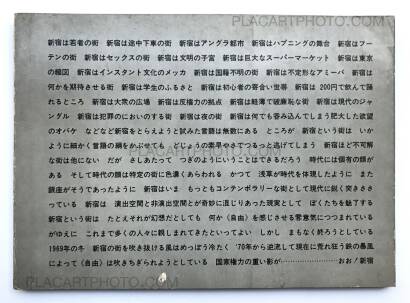 PLACARTPHOTO.COM
新宿は若者の街　新宿は途中下車の街　新宿はアングラ都市　新宿はハプニングの舞台　新宿はフー
テンの街　新宿はセックスの街　新宿は文明の子宮　新宿は巨大なスーパーマーケット　新宿は東京
の縮図　新宿はインスタント文化のメッカ　新宿は国籍不明の街　新宿は不定形なアミーバ　新宿は
何かを期待させる街　新宿は学生のふるさと　新宿は初心者の寄合い世帯　新宿は 200円で飲んで踊
れるところ　新宿は大衆の広場　新宿は反権力の拠点　新宿は軽薄で破廉恥な街　新宿は現代のジャ
ングル　新宿は犯罪のにおいのする街　新宿は夜の街　新宿は何でも呑み込んでしまう肥大した欲望
のオバケ　などなど新宿をとらえようと試みた言語は無数にある　ところが　新宿という街は　いか
ように細かく言語の網をかぶせても　どじょうの素早やさでつるっと逃げてしまう　新宿ほど不可解
な街は他にない　だが　さしあたって　つぎのようにいうことはできるだろう　時代には個有の顔が
ある　そして時代の顔は特定の街に色濃くあらわれる　かつて　浅草が時代を体現したように　また
銀座がそうであったように　新宿はいま　もっともコンテンポラリーな街として現代に鋭く突きささ
っている　新宿は　演出空間と非演出空間とが奇妙に混じりあった現実として　ぼくたちを魅了する
新宿という街は　たとえそれが幻想だとしても　何か《自由》を感じさせる雰意気につつまれている
がゆえに　これまで多くの人々に親しまれてきたといってよい　しかし　まもなく終ろうとしている
1969年の冬　新宿の街を吹き抜ける風はめっぽう冷たく　'70年から逆流して現在に荒れ狂う鉄の暴風
によって《自由》は吹きちぎられようとしている　国家権力の重い影が………………おお！新宿
PLACARTPHOTO.COM